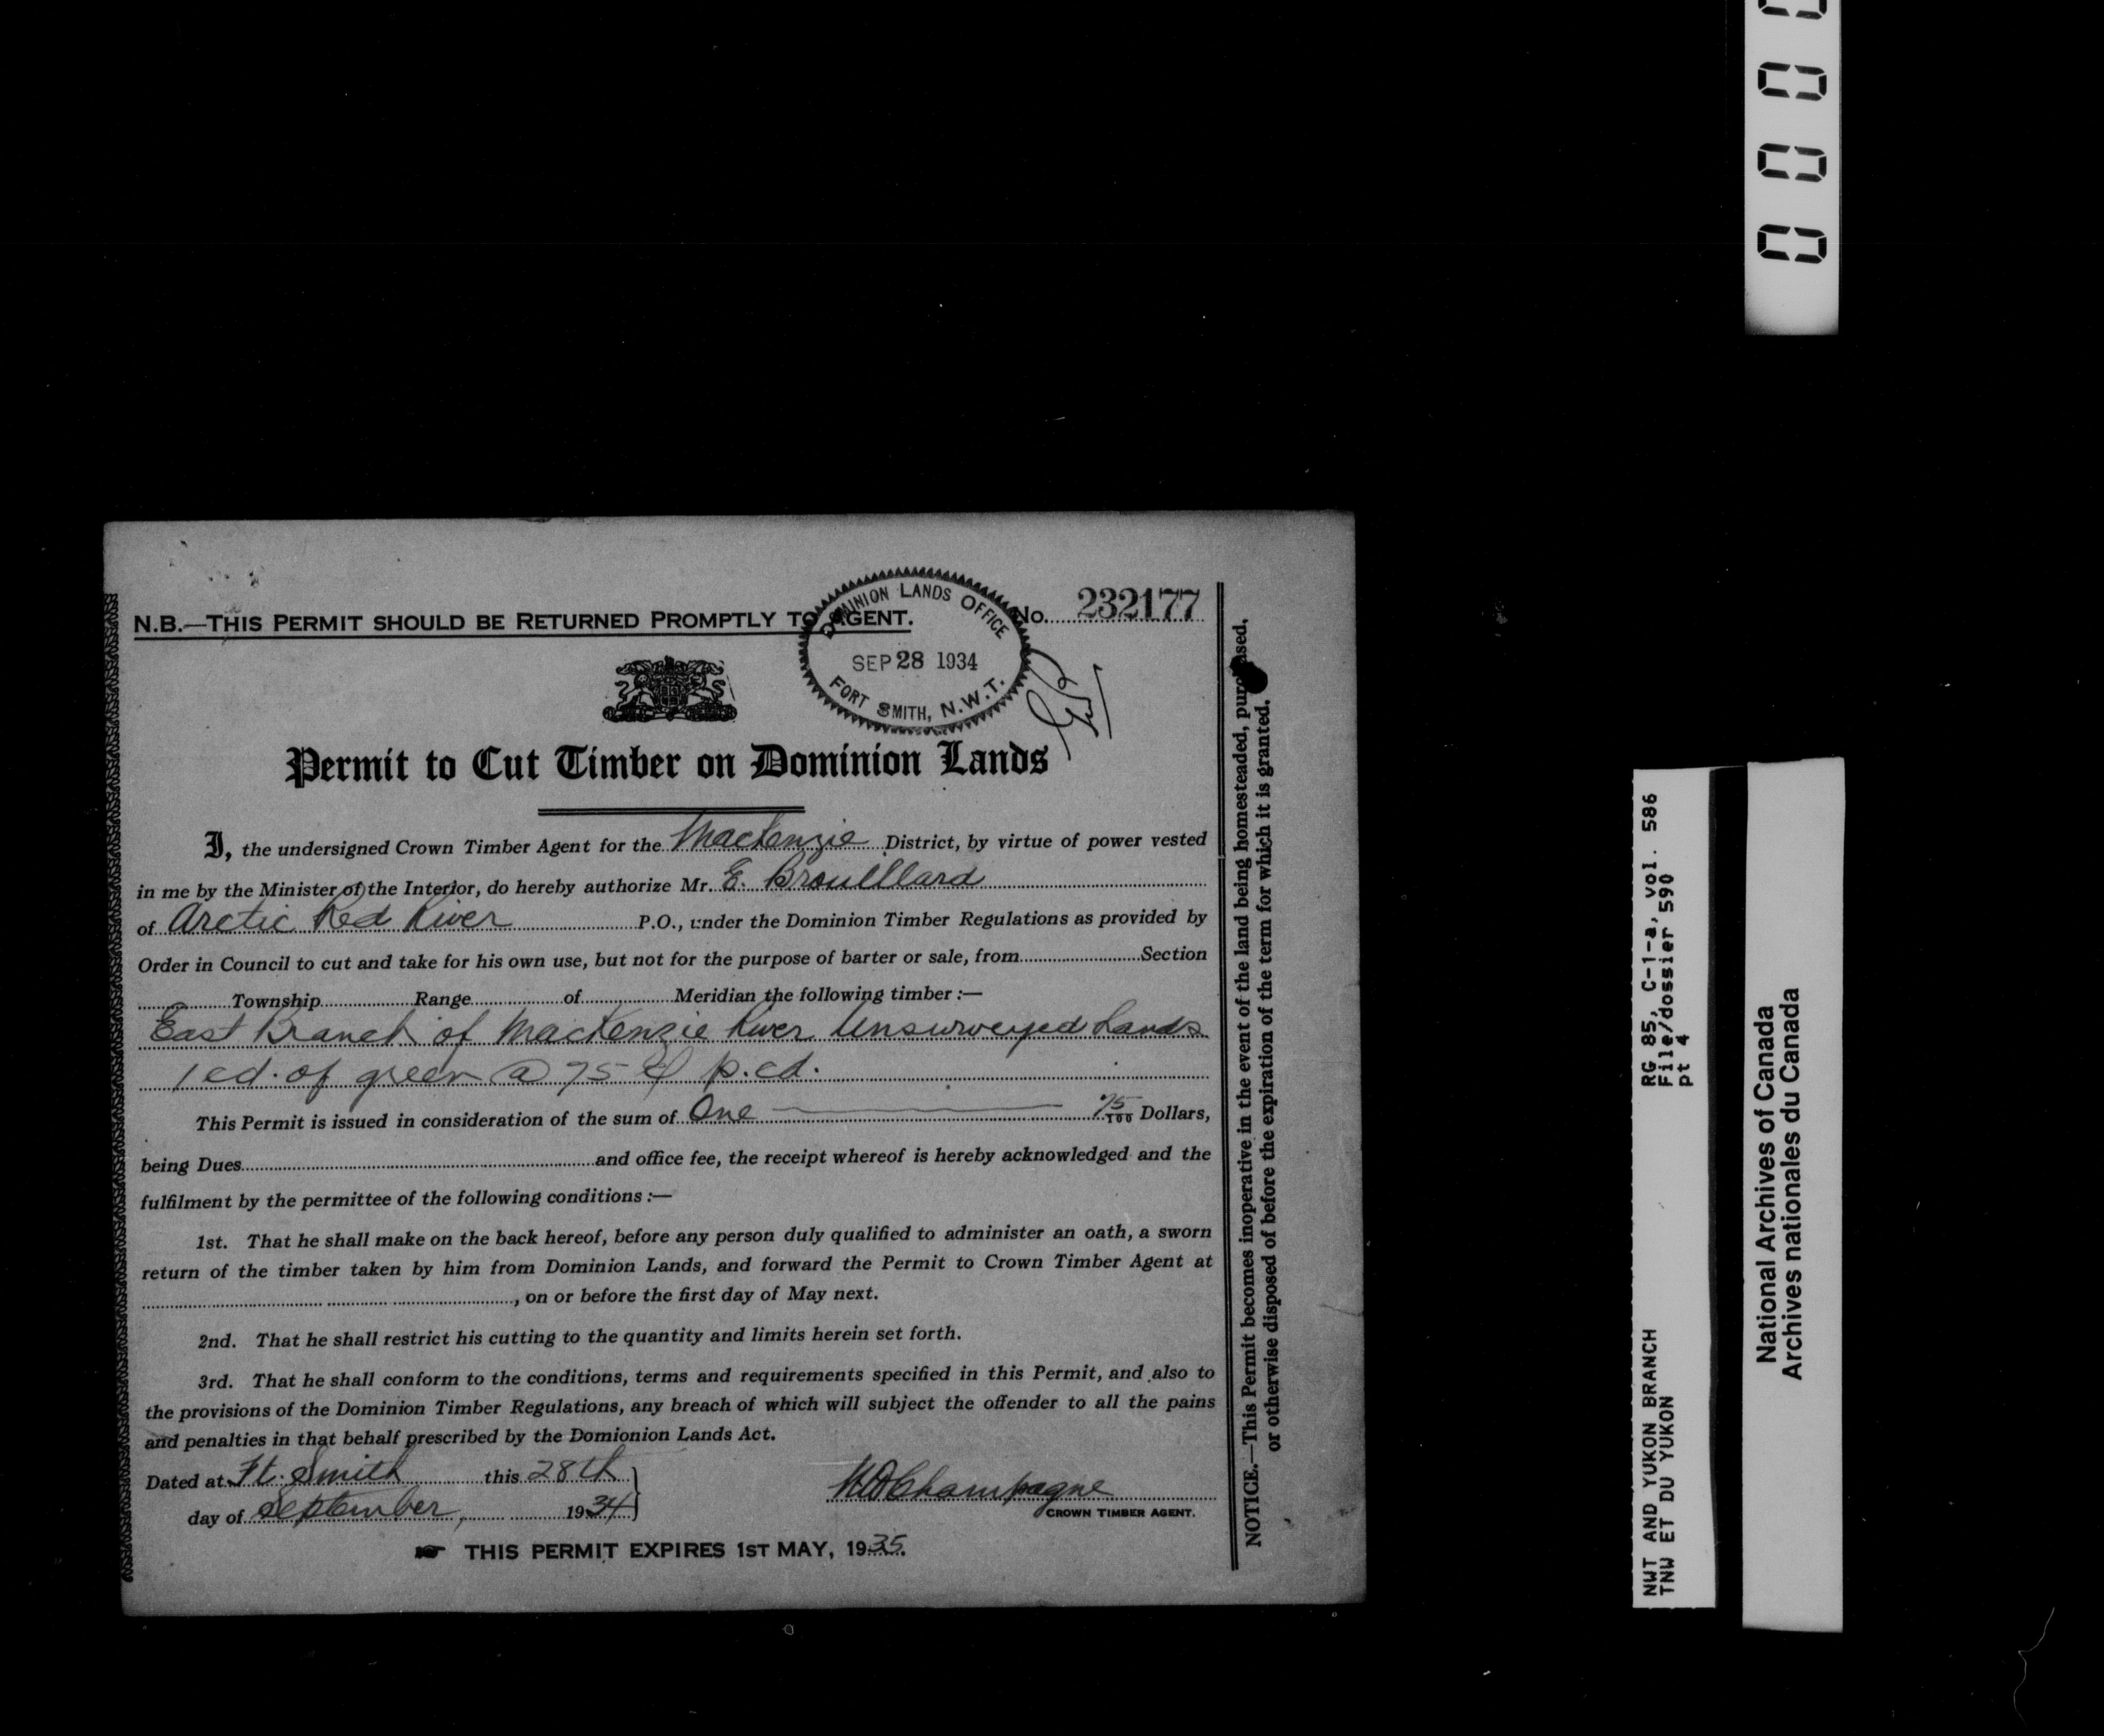 N.B.—THIS PERMIT SHOULD BE RETURNED PROMPTLY TO AGENT.
No. 232177
DOMINION LANDS OFFICE
SEP 28 1934
FORT SMITH, N.W.T.
Permit to Cut Timber on Dominion Lands
I, the undersigned Crown Timber Agent for the MacKenzie District, by virtue of power vested
in me by the Minister of the Interior, do hereby authorize Mr. E. Brouillard
of Arctic Red River P.O., under the Dominion Timber Regulations as provided by
Order in Council to cut and take for his own use, but not for the purpose of barter or sale, from Section
Township Range of Meridian the following timber :—
East Branch of MacKenzie River Unsurveyed Lands
1 cd. of green @ 75 ¢ p.cd.
This Permit is issued in consideration of the sum of One 75/100 Dollars,
being Dues and office fee, the receipt whereof is hereby acknowledged and the
fulfilment by the permittee of the following conditions :—
1st. That he shall make on the back hereof, before any person duly qualified to administer an oath, a sworn
return of the timber taken by him from Dominion Lands, and forward the Permit to Crown Timber Agent at
, on or before the first day of May next.
2nd. That he shall restrict his cutting to the quantity and limits herein set forth.
3rd. That he shall conform to the conditions, terms and requirements specified in this Permit, and also to
the provisions of the Dominion Timber Regulations, any breach of which will subject the offender to all the pains
and penalties in that behalf prescribed by the Domionion Lands Act.
Dated at Ft. Smith this 28th
day of September, 1934
Champagne
CROWN TIMBER AGENT.
THIS PERMIT EXPIRES 1ST MAY, 1935.
NOTICE.—This Permit becomes inoperative in the event of the land being homesteaded, purchased,
or otherwise disposed of before the expiration of the term for which it is granted.
NWT AND YUKON BRANCH RG 85, C-1-a, vol. 586
TNW ET DU YUKON File/dossier 590
pt 4
National Archives of Canada
Archives nationales du Canada
0 0 0